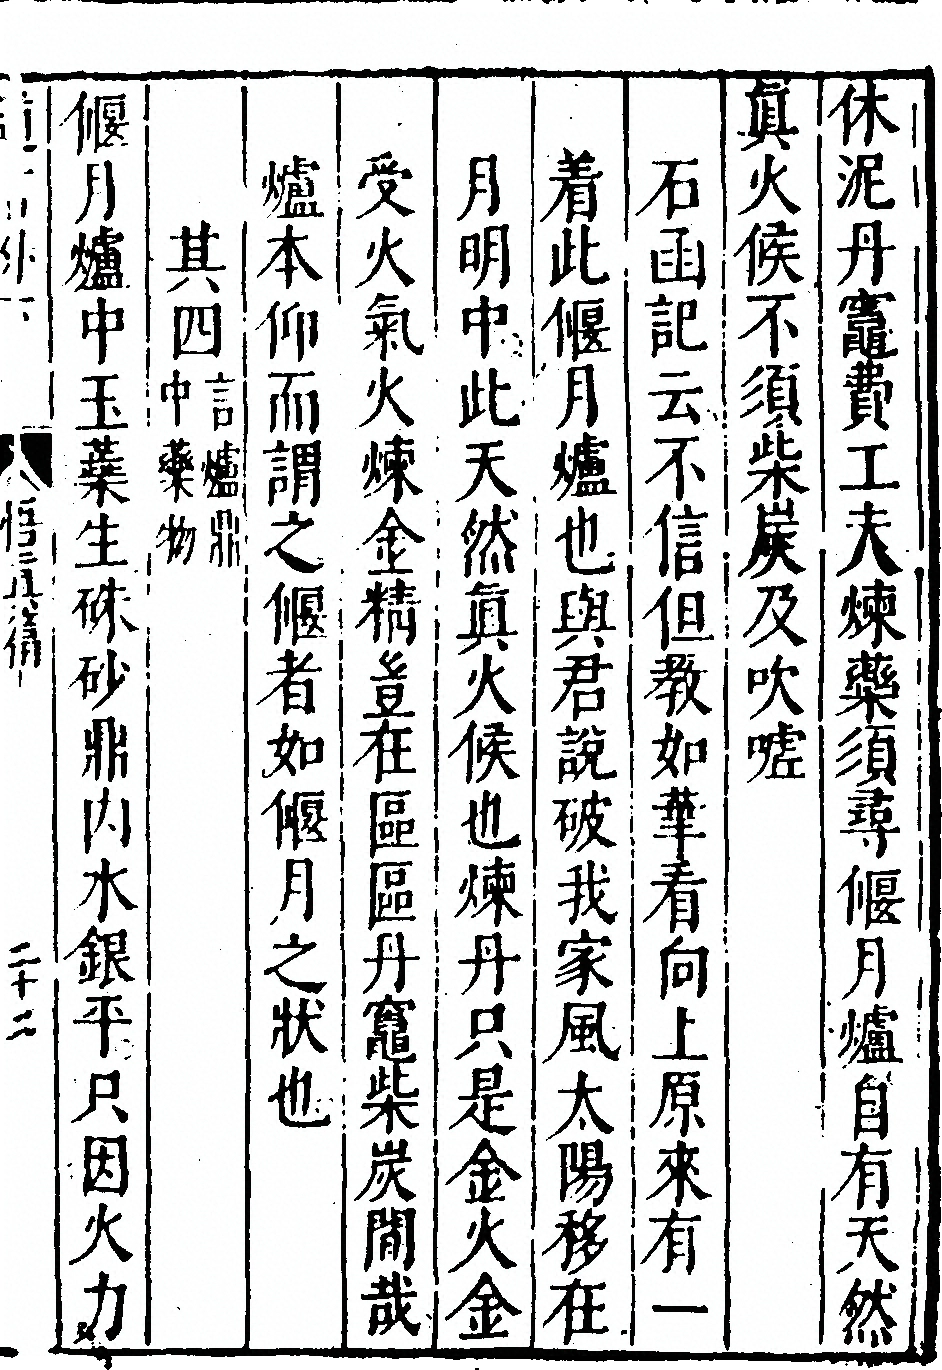 休泥丹竈費工夫煉藥須尋偃月爐自有天然
眞火候不須柴炭及吹噓
石函記云不信但教如葦看向上原來有一
着此偃月爐也與君說破我家風太陽移在
月明中此天然眞火候也煉丹只是金火金
受火氣火煉金精豈在區區丹竈柴炭間哉
爐本仰而謂之偃者如偃月之狀也
其四言爐鼎中藥物
偃月爐中玉蘂生硃砂鼎內水銀平只因火力
悟眞篇
二十二